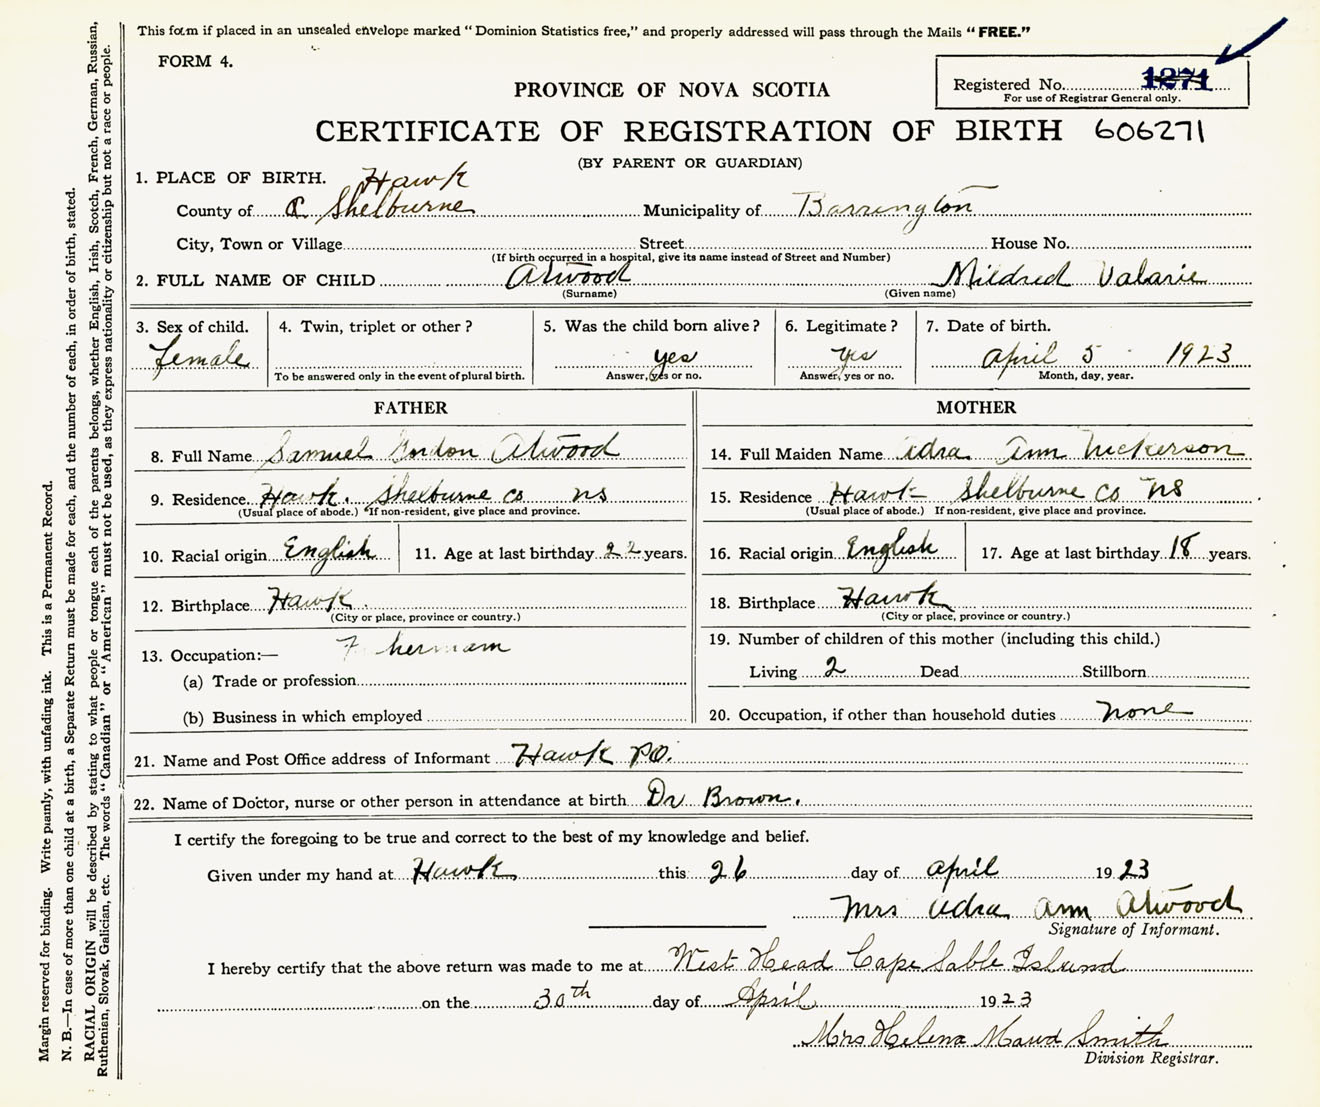 This form if placed in an unsealed envelope marked "Dominion Statistics free," and properly addressed will pass through the Mails "FREE."
FORM 4.
Registered No. 1271
For use of Registrar General only.
PROVINCE OF NOVA SCOTIA
CERTIFICATE OF REGISTRATION OF BIRTH 606271
(BY PARENT OR GUARDIAN)
1. PLACE OF BIRTH. Hawk
County of Shelburne Municipality of Barrington
City, Town or Village Street House No.
(If birth occurred in a hospital, give its name instead of Street and Number)
2. FULL NAME OF CHILD Atwood Mildred Valarie
(Surname) (Given name)
3. Sex of child. 4. Twin, triplet or other? 5. Was the child born alive? 6. Legitimate? 7. Date of birth.
female yes yes April 5 1923
To be answered only in the event of plural birth. Answer, yes or no. Answer, yes or no. Month, day, year.
FATHER MOTHER
8. Full Name Samuel Gordon Atwood 14. Full Maiden Name Adra Ann Nickerson
9. Residence Hawk. Shelburne Co NS 15. Residence Hawk Shelburne Co NS
(Usual place of abode.) If non-resident, give place and province. (Usual place of abode.) If non-resident, give place and province.
10. Racial origin English 11. Age at last birthday 22 years. 16. Racial origin English 17. Age at last birthday 18 years.
12. Birthplace Hawk. 18. Birthplace Hawk
(City or place, province or country.) (City or place, province or country.)
13. Occupation:— F hermam 19. Number of children of this mother (including this child.)
(a) Trade or profession Living 2 Dead Stillborn
(b) Business in which employed 20. Occupation, if other than household duties none
21. Name and Post Office address of Informant Hawk PO.
22. Name of Doctor, nurse or other person in attendance at birth Dr Brown.
I certify the foregoing to be true and correct to the best of my knowledge and belief.
Given under my hand at Hawk this 26 day of April 1923
Mrs Adra Ann Atwood
Signature of Informant.
I hereby certify that the above return was made to me at West Head Cape Sable Island
on the 30th day of April 1923
Mrs Helena Maud Smith
Division Registrar.
Margin reserved for binding. Write plainly, with unfading ink. This is a Permanent Record.
N. B.—In case of more than one child at a birth, a Separate Return must be made for each, and the number of each, in order of birth, stated.
RACIAL ORIGIN will be described by stating to what people or tongue each of the parents belongs, whether English, Irish, Scotch, French, German, Russian,
Ruthenian, Slovak, Galician, etc. The words "Canadian" or "American" must not be used, as they express nationality or citizenship but not a race or people.